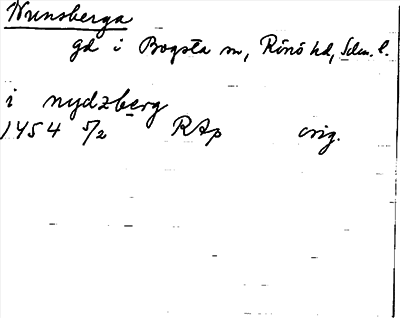 Nunsberga
gd i Bogsta sn, Rönö hd, Sdm. l.
i nydzberg
1454 5/2 RAp orig.